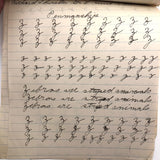 Penmanship
Z Z Z Z Z Z Z Z
Z Z Z Z Z Z Z Z
Z Z Z Z Z Z Z Z
z z z z z z z z z z z z
z z z z z z z z z z z z
z z z z z z z z z z z z
Zebras are striped animals
Zebras are striped animals
Zebras are striped animals
Z Z Z Z Z Z Z Z
Z Z Z Z Z Z Z Z
Z Z Z Z Z Z Z Z